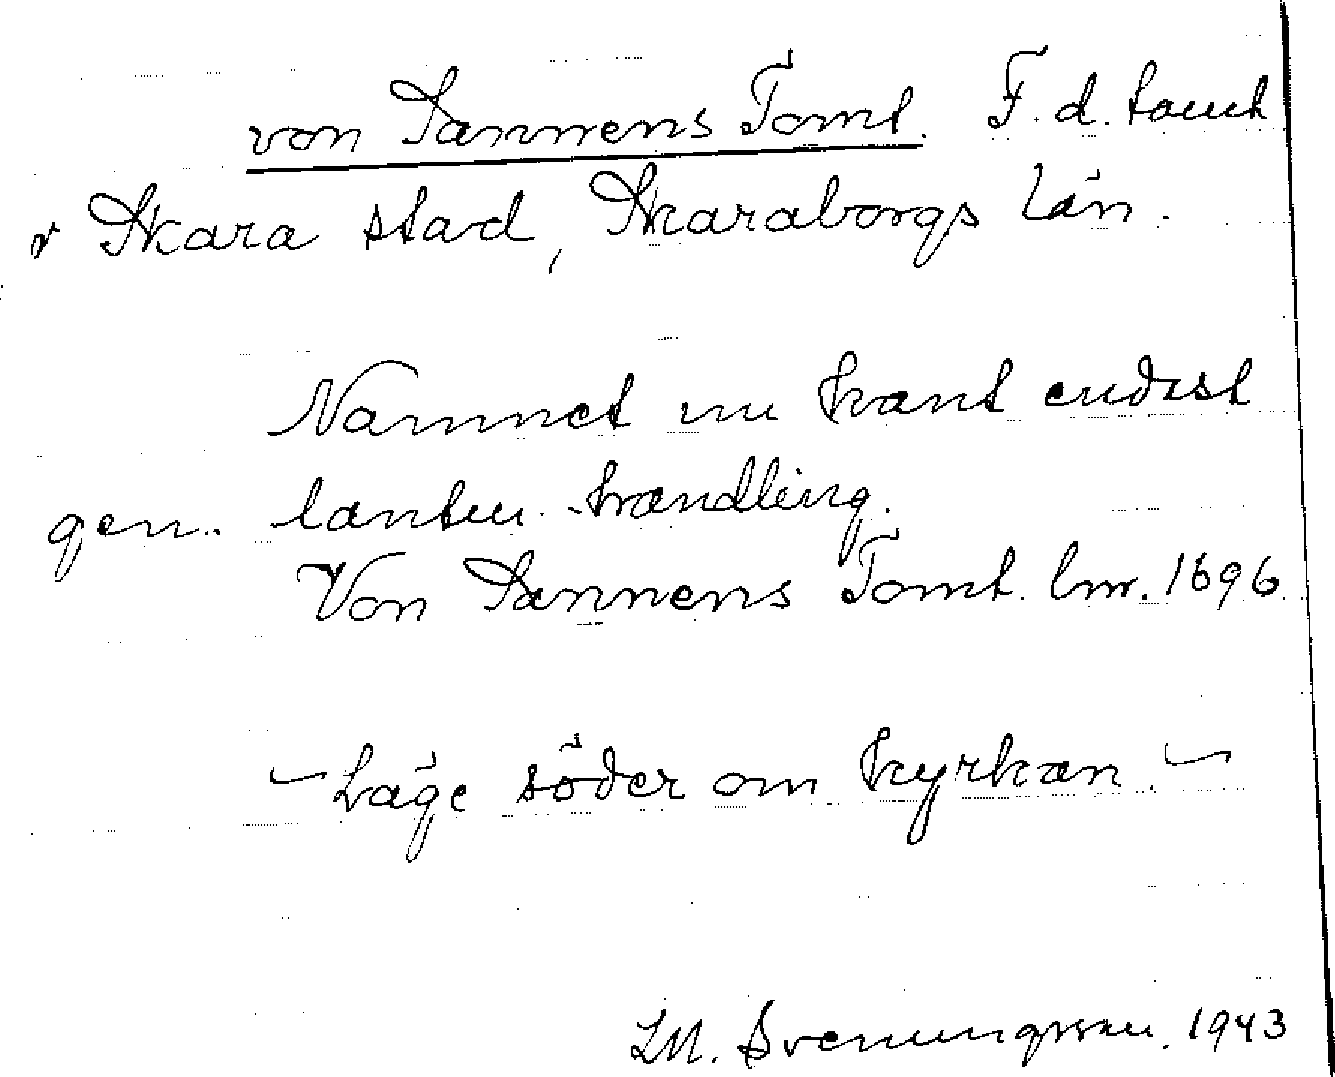 von Sannens Tomt. F. d. tomt
i Skara stad, Skaraborgs Län.
Namnet nu känt endast
gen. lantm. handling.
Von Sannens Tomt. lm. 1696
Läge söder om kyrkan.
LM. Svenungsson. 1943